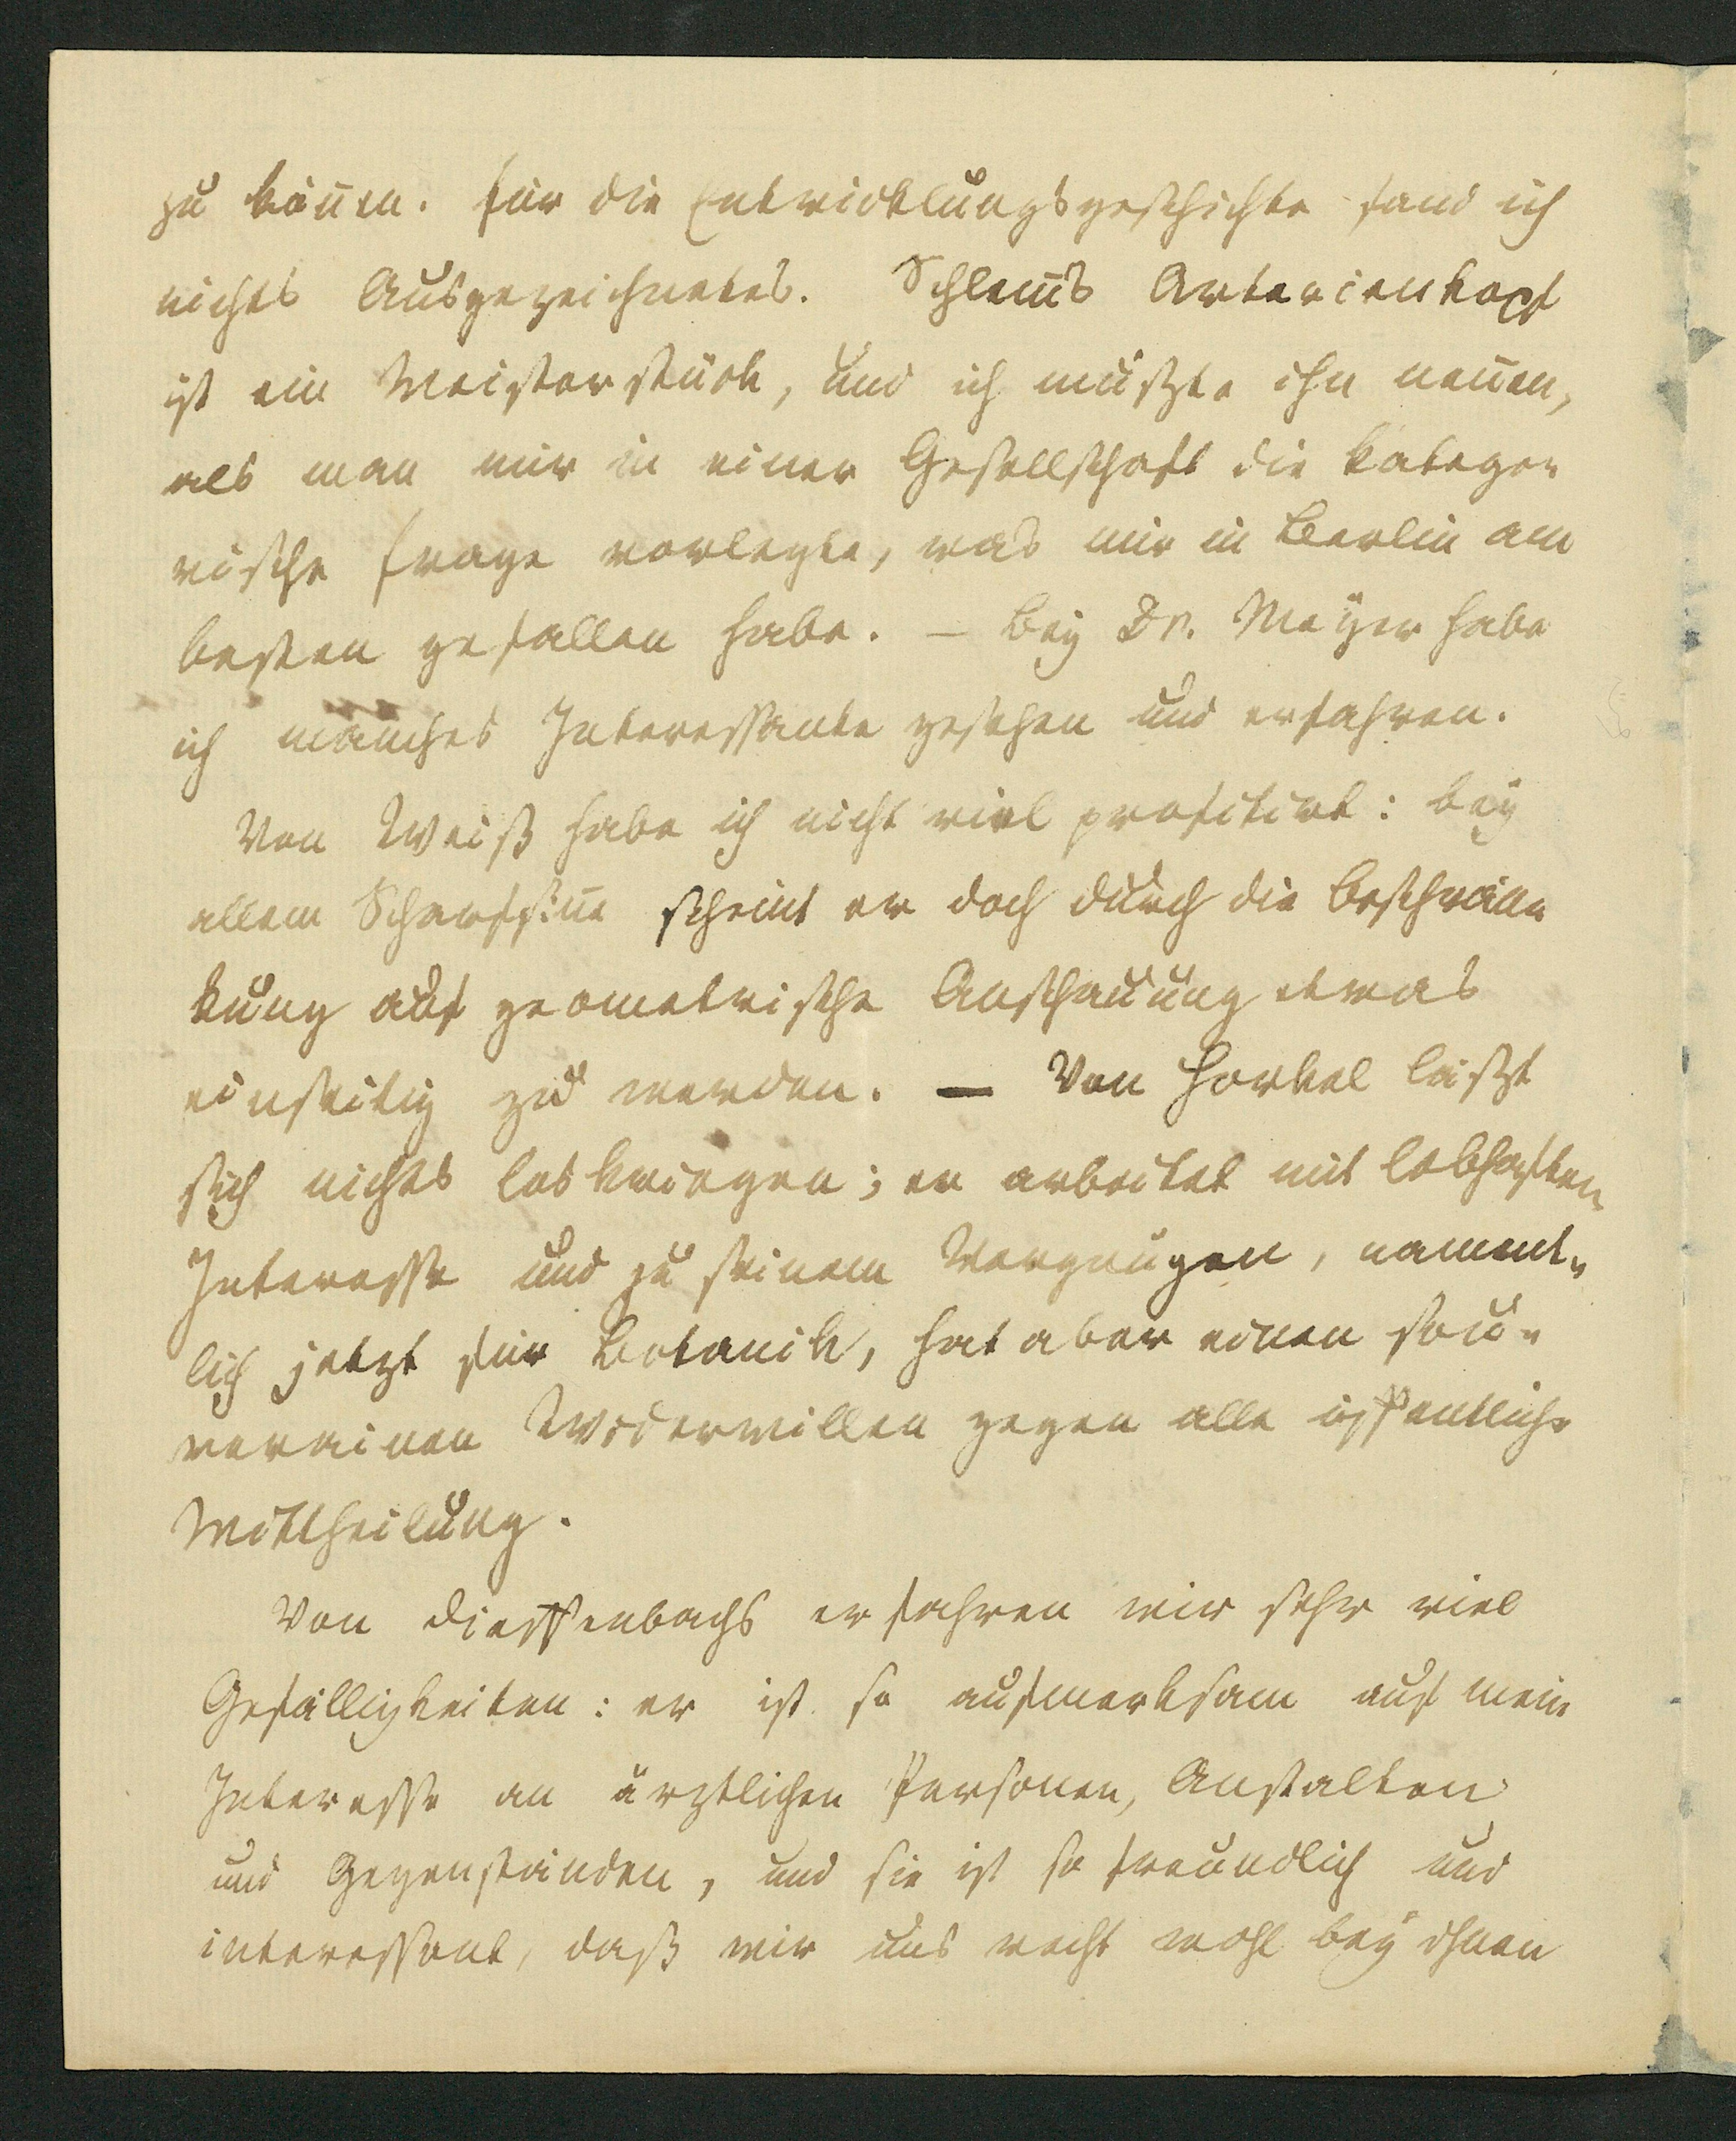 zu kön̅en. Für die Entwicklungsgeschichte fand ich
nichts Ausgezeichnetes. Schlem̅s Arterienkopf
ist ein Meisterstück, und ich mußte ihn nen̅en,
als man mir in einer Gesellschaft die katego-
rische Frage vorlegte, was mir in Berlin am
besten gefallen habe. – Bey Dr. Meyer habe
ich manches Interessante gesehen und erfahren.
Von Weiß habe ich nicht viel profitirt: bey
allem Scharfsin̅e scheint er doch durch die Beschrän-
kung auf geometrische Anschauung etwas
einseitig zu werden. — Von Horkel läßt
sich nichts loskriegen; er arbeitet mit lebhaften
Interesse und zu seinem Vergnügen, nament-
lich jetzt für Botanik, hat aber einen sou-
verainen Widerwillen gegen alle öffentliche
Mittheilung.
Von Dieffenbachs erfahren wir sehr viel
Gefälligkeiten: er ist so aufmerksam auf mein
Interesse an ärztlichen Personen, Anstalten
und Gegenständen, und sie ist so freundlich und
interessant, daß wir uns recht wohl bey ihnen